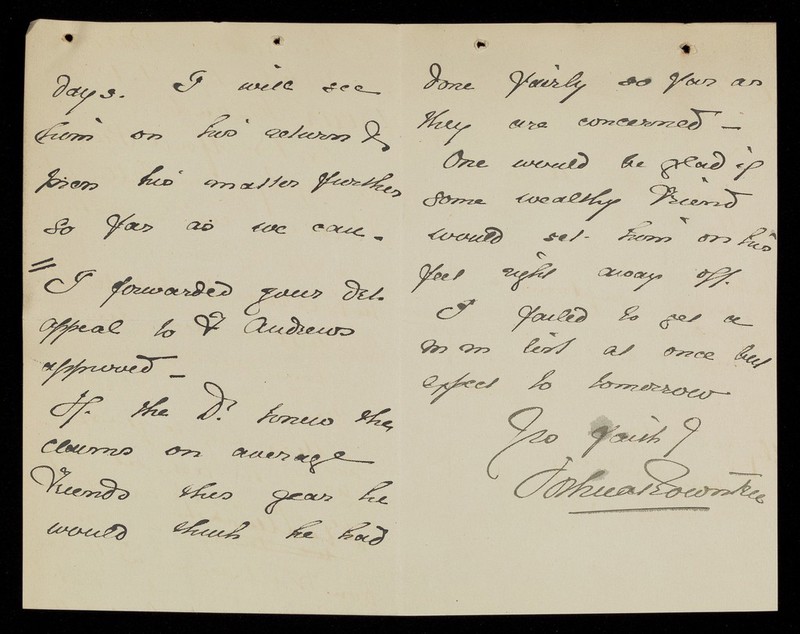 days. I will see
him on his return &
press his matter further
so far as we can.
I forwarded your Del.
appeal to F Andrews
approved —
If the Dr. knew the
claims on average
Friends this year he
would think he had
done fairly so far as
they are concerned —
One would be glad if
some wealthy Friend
would set him on his
feet right away off.
I failed to get a
m m list at once but
expect to tomorrow
Yrs faithf
Joshua Rowntree